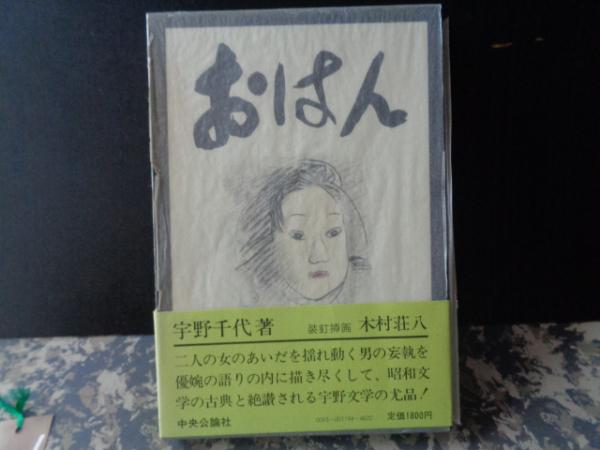 おはん
宇野千代著 装釘挿画 木村荘八
二人の女のあいだを揺れ動く男の妄執を
優婉の語りの内に描き尽くして、昭和文
学の古典と絶讃される宇野文学の尤品!
中央公論社 定価1800円